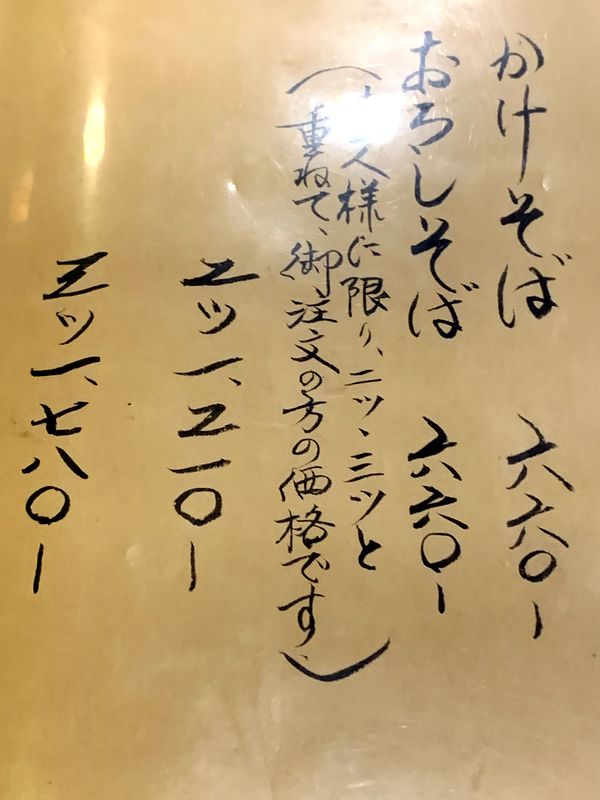 かけそば 六六〇ー
おろしそば 六六〇ー
（人様に限り、二ツ、三ツと
重ねて、御注文の方の価格です）
二ツ 一、二一〇ー
三ツ 一、七八〇ー